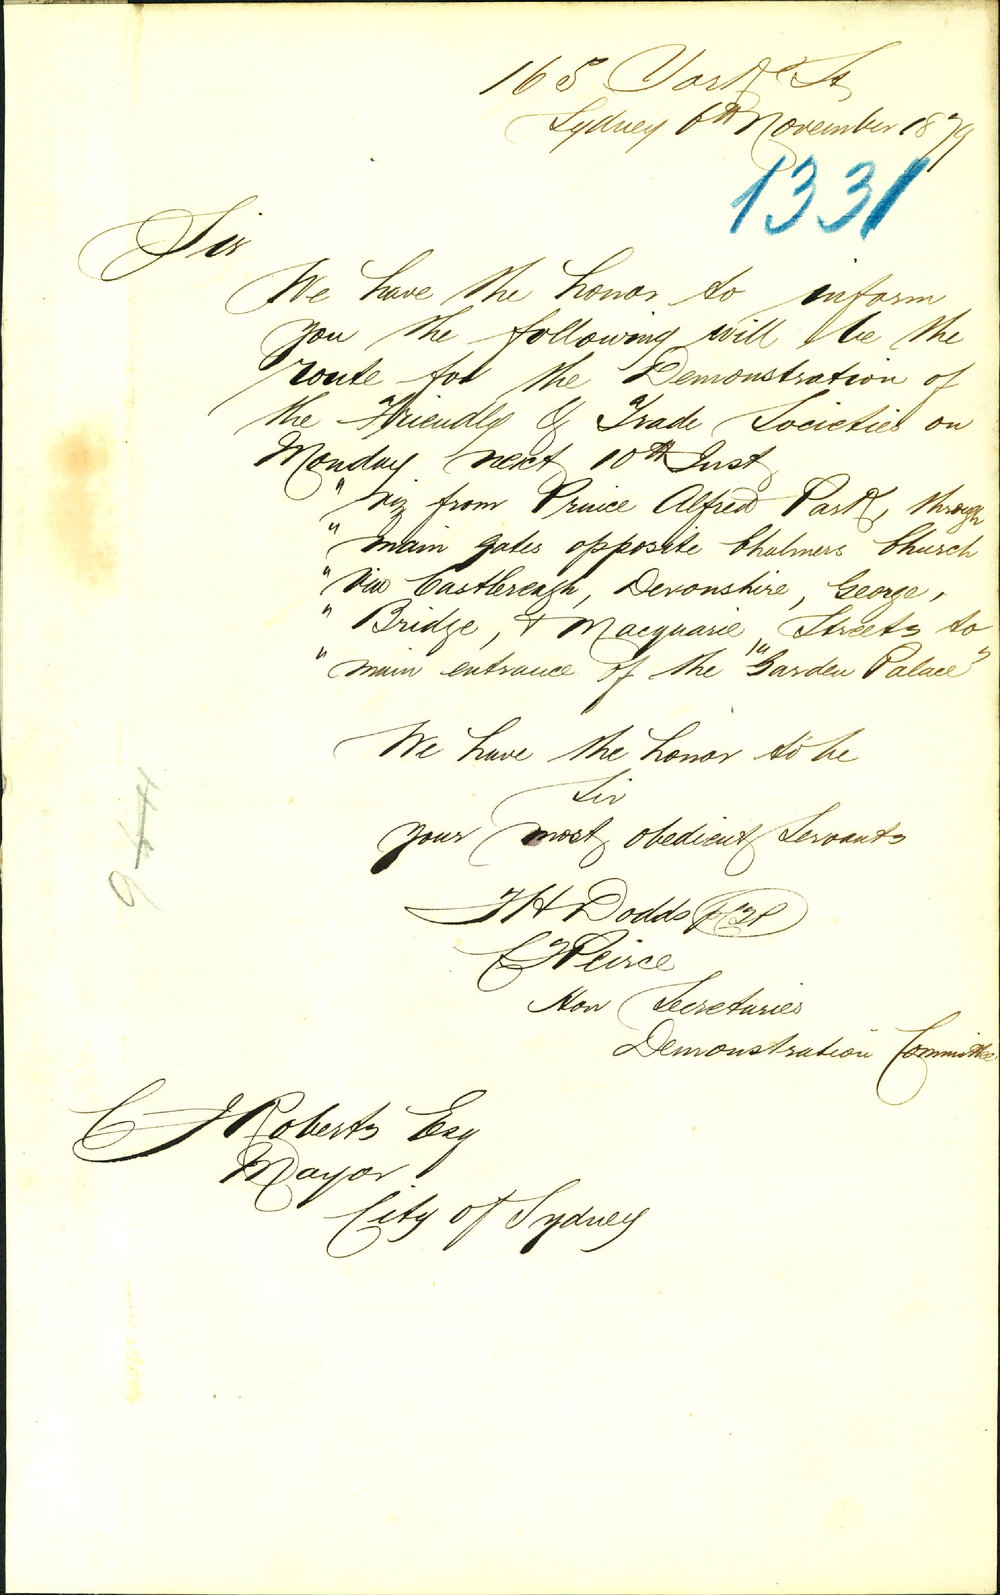 165 York St
Sydney 6th November 1879
1331
Sir
We have the honor to inform
you the following will be the
route for the Demonstration of
the Friendly & Trade Societies on
Monday next 10th Inst
" viz from Prince Alfred Park, through
" main gates opposite Chalmers Church
" via Castlereagh, Devonshire, George,
" Bridge, & Macquarie, Streets to
" main entrance of the "Garden Palace"
We have the honor to be
Sir
your most obedient Servants
T H Dodds
C T Peirce
Hon Secretaries
Demonstration Committee
C J Roberts Esq
Mayor
City of Sydney